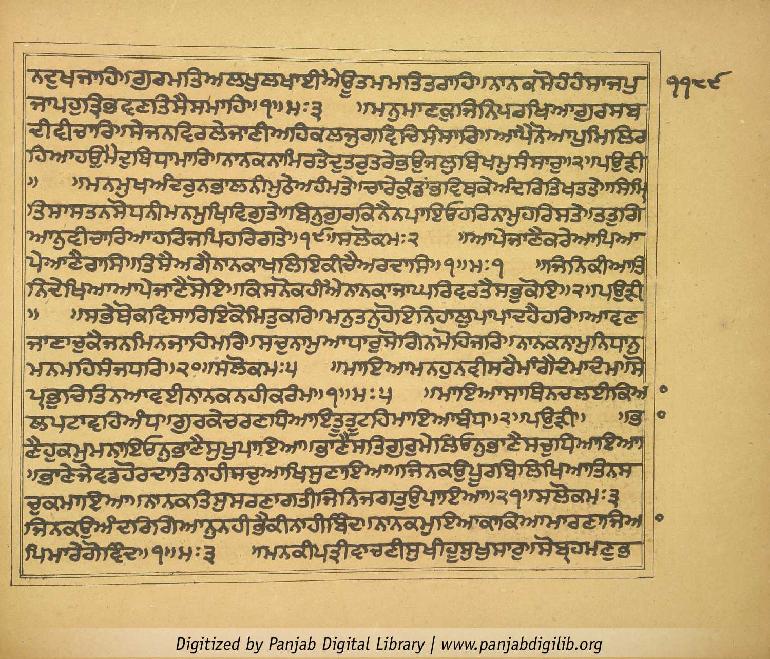 ਨਦੁਖਜਾਹਿ॥ਗੁਰਮਤਿਅਲਖੁਲਖਾਈਐਊਤਮਮਤਿਤਰਾਹਿ॥ਨਾਨਕਸੋਹੰਹੰਸਾਜਪੁ
ਜਾਪਹੁਤ੍ਰਿਭਵਣਤਿਸੈਸਮਾਹਿ॥੧॥ਮਃ੩ ॥ਮਨੁਮਾਣਕੁਜਿਨਿਪਰਖਿਆਗੁਰਸਬ
ਦੀਵੀਚਾਰਿ॥ਸੇਜਨਵਿਰਲੇਜਾਣੀਅਹਿਕਲਜੁਗਵਿਚਿਸੰਸਾਰਿ॥ਆਪੈਨੋਆਪੁਮਿਲਿਰ
ਹਿਆਹਉਮੈਦੁਬਿਧਾਮਾਰਿ॥ਨਾਨਕਨਾਮਿਰਤੇਦੁਤਰੁਤਰੇਭਉਜਲੁਬਿਖਮੁਸੰਸਾਰੁ॥੨॥ਪਉੜੀ
॥ ॥ਮਨਮੁਖਅੰਦਰੁਨਭਾਲਨੀਮੁਠੇਅਹੰਮਤੇ॥ਚਾਰੇਕੁੰਡਾਂਭਵਿਥਕੇਅੰਦਰਿਤਿਖਤਤੇ॥ਸਿੰਮ੍ਰਿ
ਤਿਸਾਸਤਨਸੋਧਨੀਮਨਮੁਖਿਵਿਗੁਤੇ॥ਬਿਨੁਗੁਰਕਿਨੈਨਪਾਇਓਹਰਿਨਾਮੁਹਰਿਸਤੇ॥ਤਤੁਗਿ
ਆਨੁਵੀਚਾਰਿਆਹਰਿਜਪਿਹਰਿਗਤੇ॥੧੯॥ਸਲੋਕਮਃ੨ ॥ਆਪੇਜਾਣੈਕਰੇਆਪਿਆ
ਪੇਆਣੈਰਾਸਿ॥ਤਿਸੈਅਗੈਨਾਨਕਾਖਲਿਇਕੀਚੈਅਰਦਾਸਿ॥੧॥ਮਃ੧ ॥ਜਿਨਿਕੀਆਤਿ
ਨਿਦੇਖਿਆਆਪੇਜਾਣੈਸੋਇ॥ਕਿਸਨੋਕਹੀਐਨਾਨਕਾਜਾਘਰਿਵਰਤੈਸਭੁਕੋਇ॥੨॥ਪਉੜੀ
॥ ॥ਸਭੇਥੋਕਵਿਸਾਰਿਇਕੋਮਿਤੁਕਰਿ॥ਮਨੁਤਨੁਹੋਇਨਿਹਾਲੁਪਾਪਾਦਹੈਹਰਿ॥ਆਵਣ
ਜਾਣਾਚੁਕੈਜਨਮਿਨਜਾਹਿਮਰਿ॥ਸਚੁਨਾਮੁਆਧਾਰੁਸੋਗਿਨਮੋਹਿਜਰਿ॥ਨਾਨਕਨਾਮੁਨਿਧਾਨੁ
ਮਨਮਹਿਸੰਜਿਧਰਿ॥੨੦॥ਸਲੋਕਮਃ੫ ॥ਮਾਇਆਮਨਹੁਨਵੀਸਰੈਮਾਂਗੈਦੰਮਾਦੰਮ॥ਸੋ
ਪ੍ਰਭੁਚਿਤਿਨਆਵਈਨਾਨਕਨਹੀਕਰੰਮ॥੧॥ਮਃ੫ ॥ਮਾਇਆਸਾਥਿਨਚਲਈਕਿਆ
ਲਪਟਾਵਹਿਅੰਧ॥ਗੁਰਕੇਚਰਣਧਿਆਇਤੂਤੂਟਹਿਮਾਇਆਬੰਧ॥੨॥ਪਉੜੀ॥ ॥ਭਾ
ਣੈਹੁਕਮੁਮਨਾਇਓਨੁਭਾਣੈਸੁਖੁਪਾਇਆ॥ਭਾਣੈਸਤਿਗੁਰੁਮੇਲਿਓਨੁਭਾਣੈਸਚੁਧਿਆਇਆ
॥ਭਾਣੇਜੇਵਡਹੋਰਦਾਤਿਨਾਹੀਸਚੁਆਖਿਸੁਣਾਇਆ॥ਜਿਨਕਉਪੂਰਬਿਲਿਖਿਆਤਿਨਸ
ਚੁਕਮਾਇਆ॥ਨਾਨਕਤਿਸੁਸਰਣਾਗਤੀਜਿਨਿਜਗਤੁਉਪਾਇਆ॥੨੧॥ਸਲੋਕਮਃ੩
ਜਿਨਕਉਅੰਦਰਿਗਿਆਨੁਨਹੀਭੈਕੀਨਾਹੀਬਿੰਦ॥ਨਾਨਕਮੁਇਆਕਾਕਿਆਮਾਰਣਾਜਿਆ
ਪਿਮਾਰੇਗੋਵਿੰਦ॥੧॥ਮਃ੩ ॥ਮਨਕੀਪਤ੍ਰੀਵਾਚਣੀਸੁਖੀਹੂਸੁਖੁਸਾਰੁ॥ਸੋਬ੍ਰਹਮਣੁਭ
Digitized by Panjab Digital Library | www.panjabdigilib.org